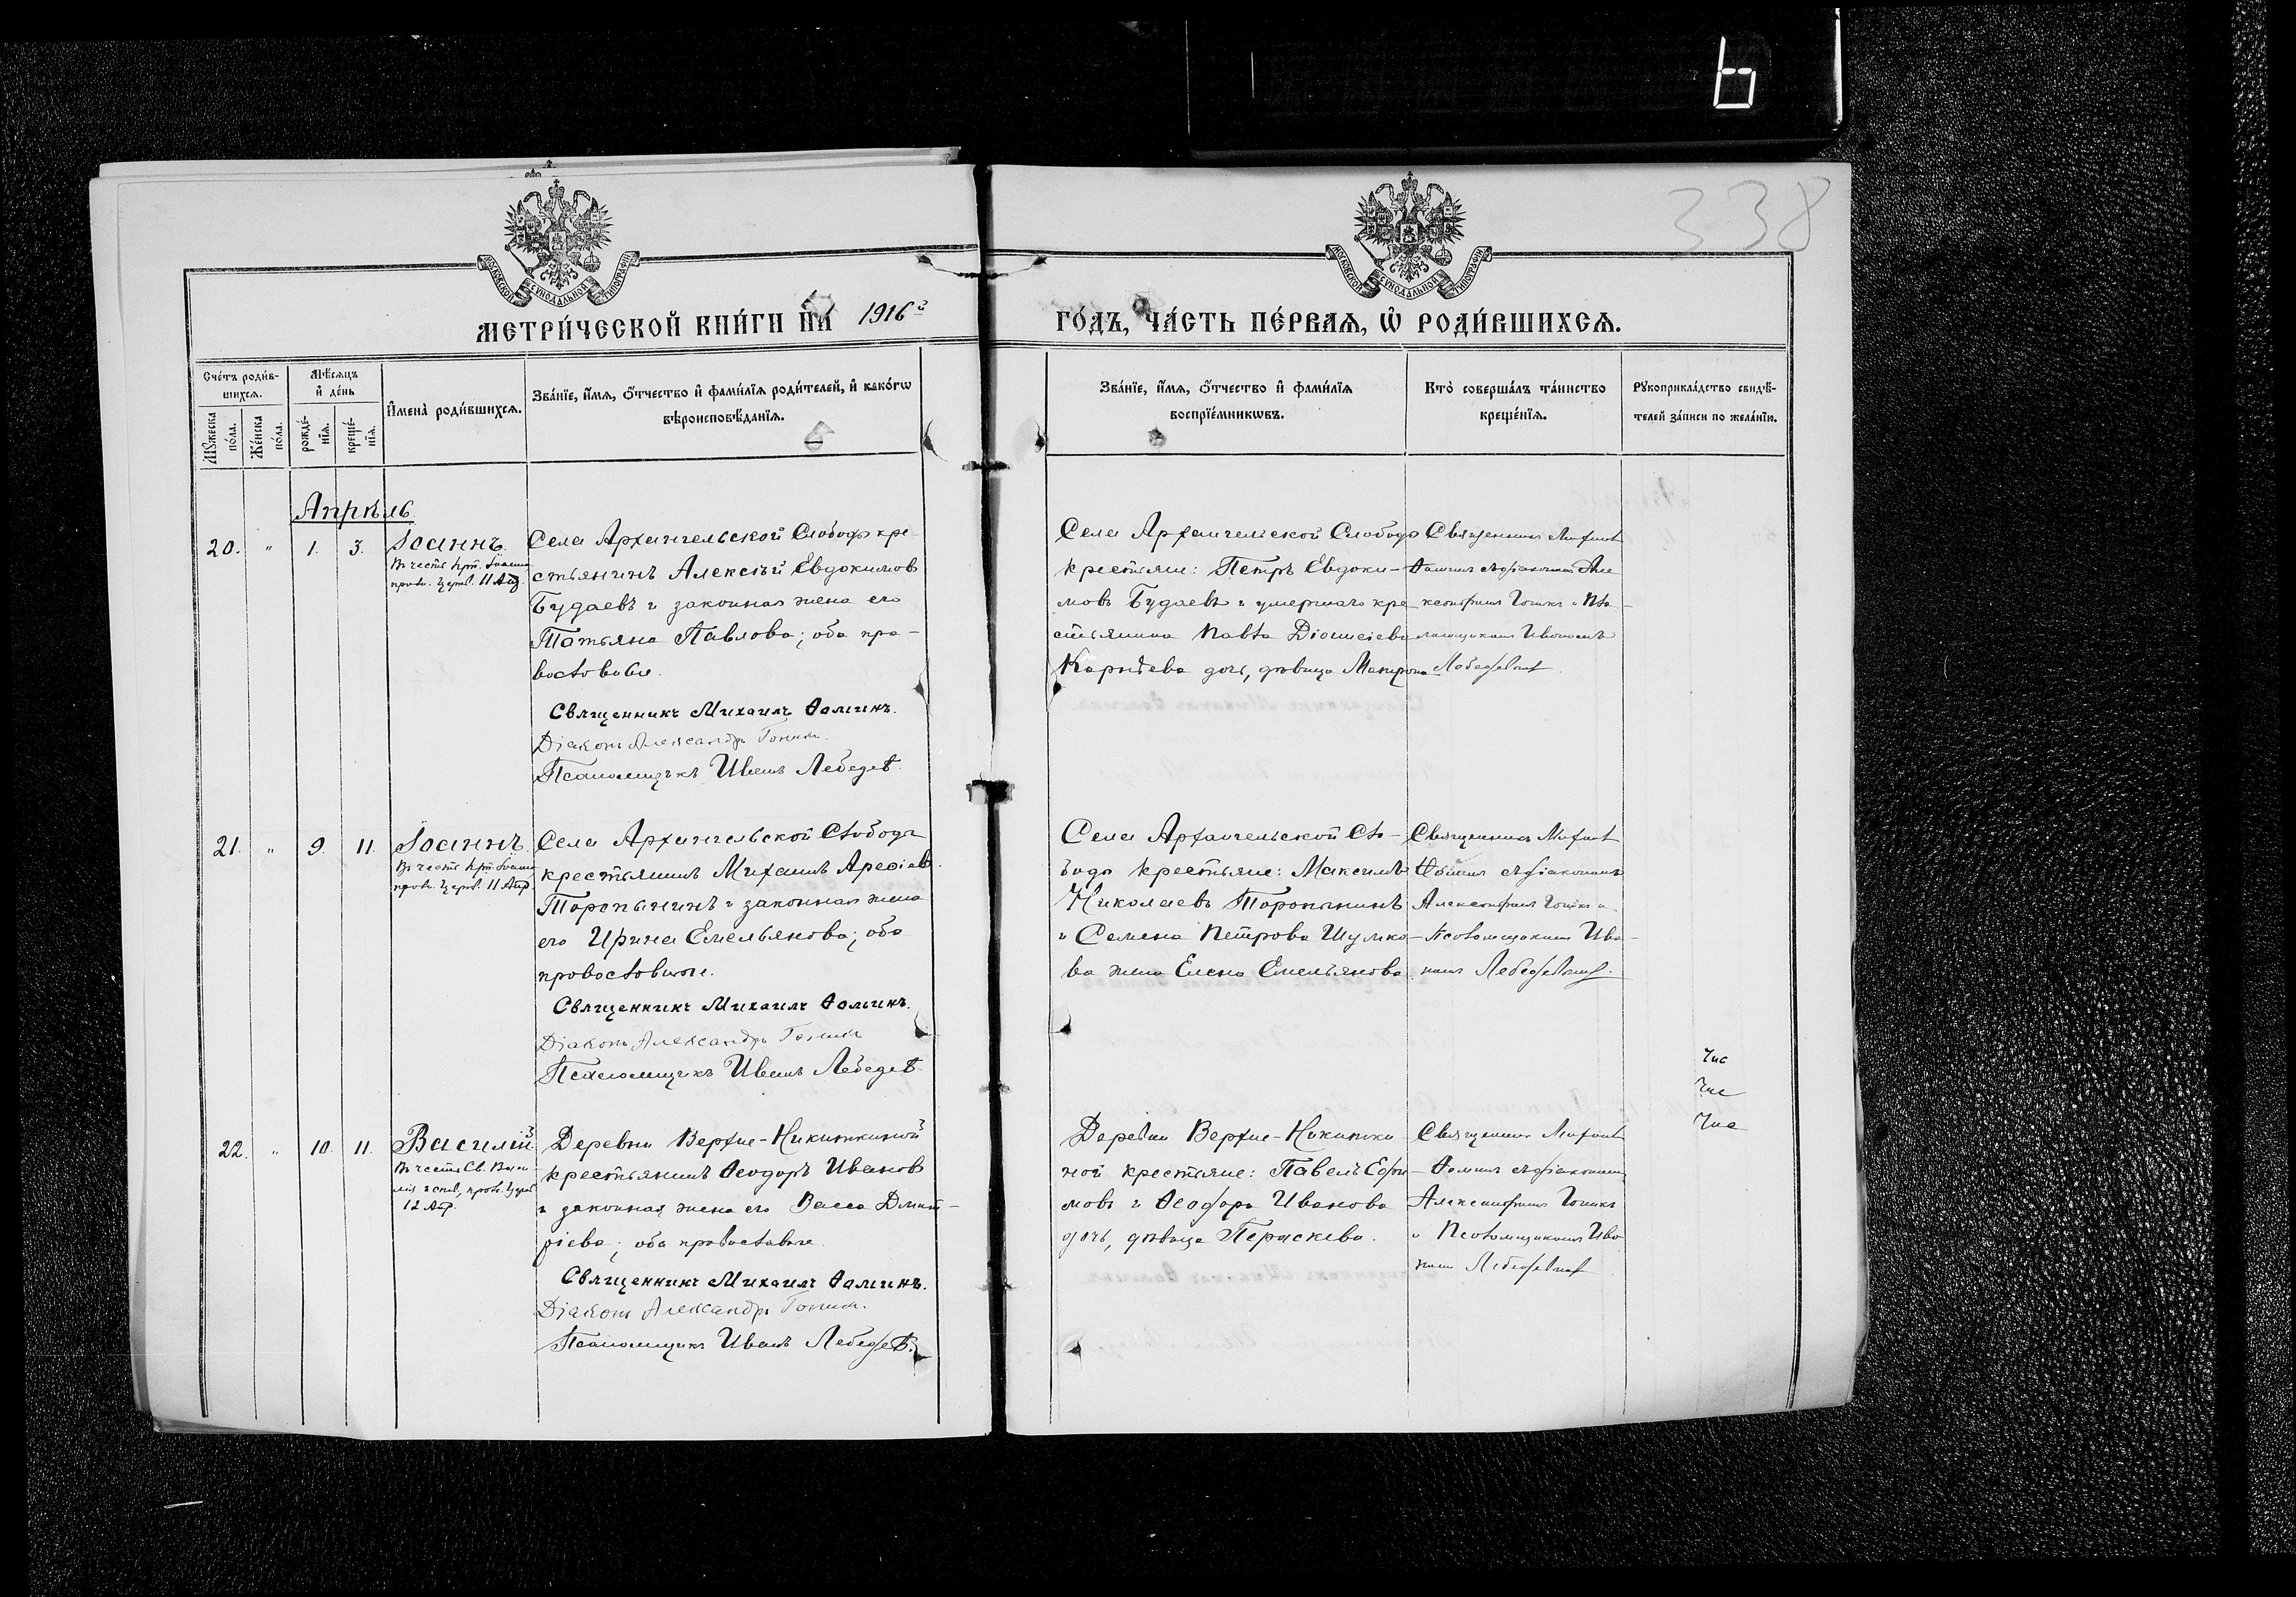 338
МОСКОВСКОЙ СѴНОДАЛЬНОЙ ТИПОГРАФІИ
МОСКОВСКОЙ СѴНОДАЛЬНОЙ ТИПОГРАФІИ
МЕТРИ́ЧЕСКОЙ КНИ́ГИ НА 1916й ГО́ДЪ, ЧА́СТЬ ПЕ́РВАѦ, Ѡ҆ РОДИ́ВШИХСѦ.
Сче́тъ роди́в-
шихсѧ.
Мꙋ́жеска по́ла.
Же́нска по́ла.
Мѣ́сѧцъ
и҆ де́нь
рожде́-
нїѧ.
креще́-
нїѧ.
И҆мена̀ роди́вшихсѧ.
Зва́нїе, и҆́мѧ, ѻ҆́тчество и҆ фами́лїѧ роди́телей, и҆ како́гѡ
вѣроисповѣ́данїѧ.
Зва́нїе, и҆́мѧ, ѻ҆́тчество и҆ фами́лїѧ
воспрїе́мникѡвъ.
Кто̀ соверша́лъ та́инство
креще́нїѧ.
Рꙋкоприкла́дство свидѣ́-
телей за́писи по жела́нїю.
Апрѣль
20. " 1. 3. Іоаннъ.
Въ честь прп. Іоанна
праздн. церк. 11 Апр.
Села Архангельской Слободы кре-
стьянинъ Алексѣй Евдокимовъ
Будаевъ и законная жена его
Татьяна Павлова; оба пра-
вославные.
Священникъ Михаилъ Ѳоминъ.
Діаконъ Александръ Гонинъ.
Псаломщикъ Иванъ Лебедевъ.
Села Архангельской Слободы
крестьяне: Петръ Евдоки-
мовъ Будаевъ и умершаго кре-
стьянина Павла Діонисіева
дочь, дѣвица Матрона
Священникъ Михаилъ
Ѳоминъ съ діакономъ Але-
ксандромъ Гонинъ и Пса-
ломщикомъ Иваномъ
Лебедевымъ
21. " 9. 11. Іоаннъ.
Въ честь прп. Іоанна
праздн. церк. 11 Апр.
Села Архангельской Слободы
крестьянинъ Михаилъ Арефіевъ
Торопынинъ и законная жена
его Ирина Емельянова; оба
православные.
Священникъ Михаилъ Ѳоминъ.
Діаконъ Александръ Гонинъ
Псаломщикъ Иванъ Лебедевъ
Села Архангельской Сло-
боды крестьяне: Максимъ
Николаевъ Торопынинъ
и Семена Петрова Шумко-
ва жена Елена Емельянова.
Священникъ Михаилъ
Ѳоминъ съ діакономъ
Александромъ Гонинъ и
Псаломщикомъ Ива-
номъ Лебедевымъ.
22. " 10. 11. Василій.
Въ честь Св. Васи-
лія испов., праздн. церк.
12 Апр.
Деревни Верхне-Никиткиной
крестьянинъ Ѳеодоръ Ивановъ
и законная жена его Васса Дмит-
ріева; оба православные.
Священникъ Михаилъ Ѳоминъ.
Діаконъ Александръ Гонинъ.
Псаломщикъ Иванъ Лебедевъ.
Деревни Верхне-Никитки-
ной крестьяне: Павелъ Ефи-
мовъ и Ѳеодора Иванова
дочь, дѣвица Параскева.
Священникъ Михаилъ
Ѳоминъ съ діакономъ
Александромъ Гонинъ
и Псаломщикомъ Ива-
номъ Лебедевымъ